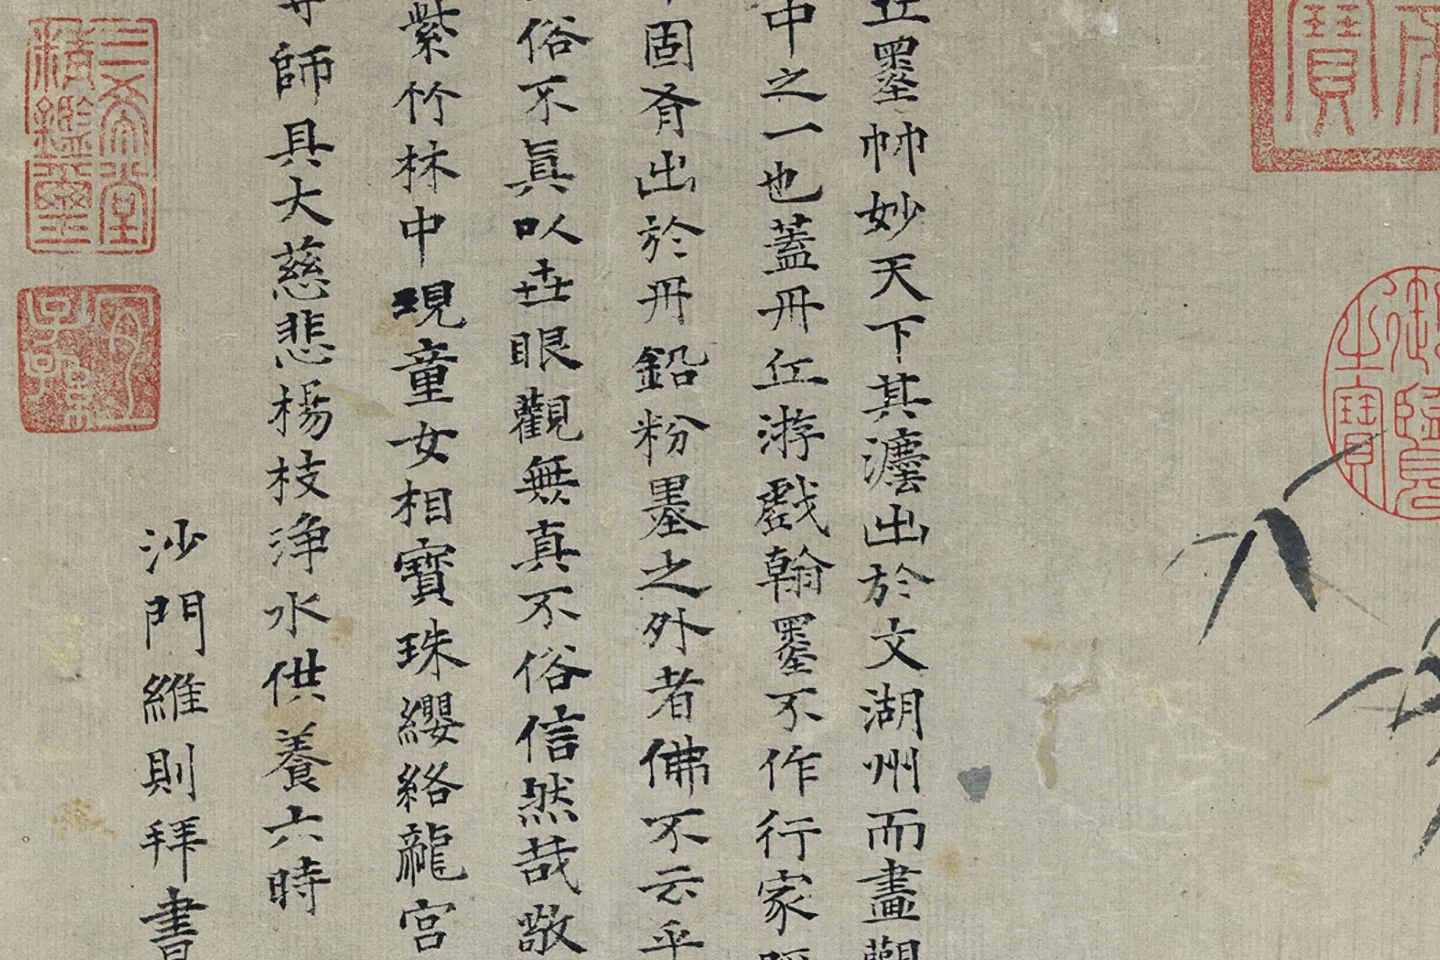 丘墨帥妙天下其灋出於文湖州而畫觀
中之一也蓋丹丘游戲翰墨不作行家
固有出於丹鉛粉墨之外者佛不云乎
俗不真以世眼觀無真不俗信然哉敬
紫竹林中現童女相寶珠纓絡龍宮
師具大慈悲楊枝淨水供養六時
沙門維則拜書
三希堂
精鑑璽
宜
子孫
御覽
之寶
寶